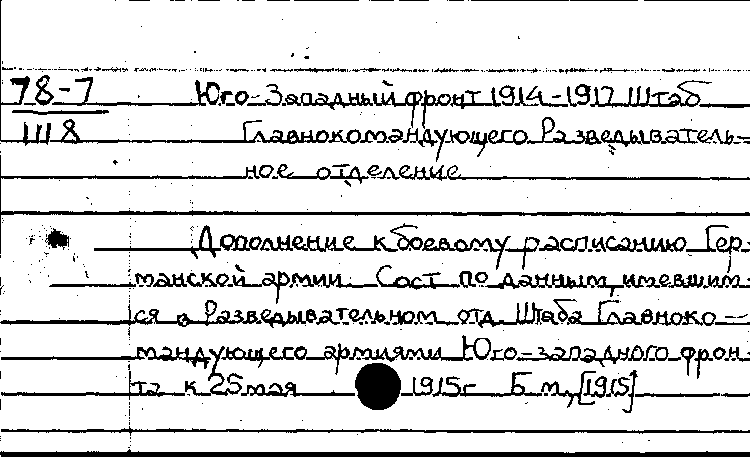 78-7 Юго-Западный фронт 1914-1917 Штаб
1118 Главнокомандующего Разведыватель-
ное отделение
Дополнение к боевому расписанию Гер-
манской армии. Сост по данным, имевшим-
ся в Разведывательном отд. Штаба Главноко-
мандующего армиями Юго-западного фрон-
та к 25 мая 1915г Б. м., [1915]